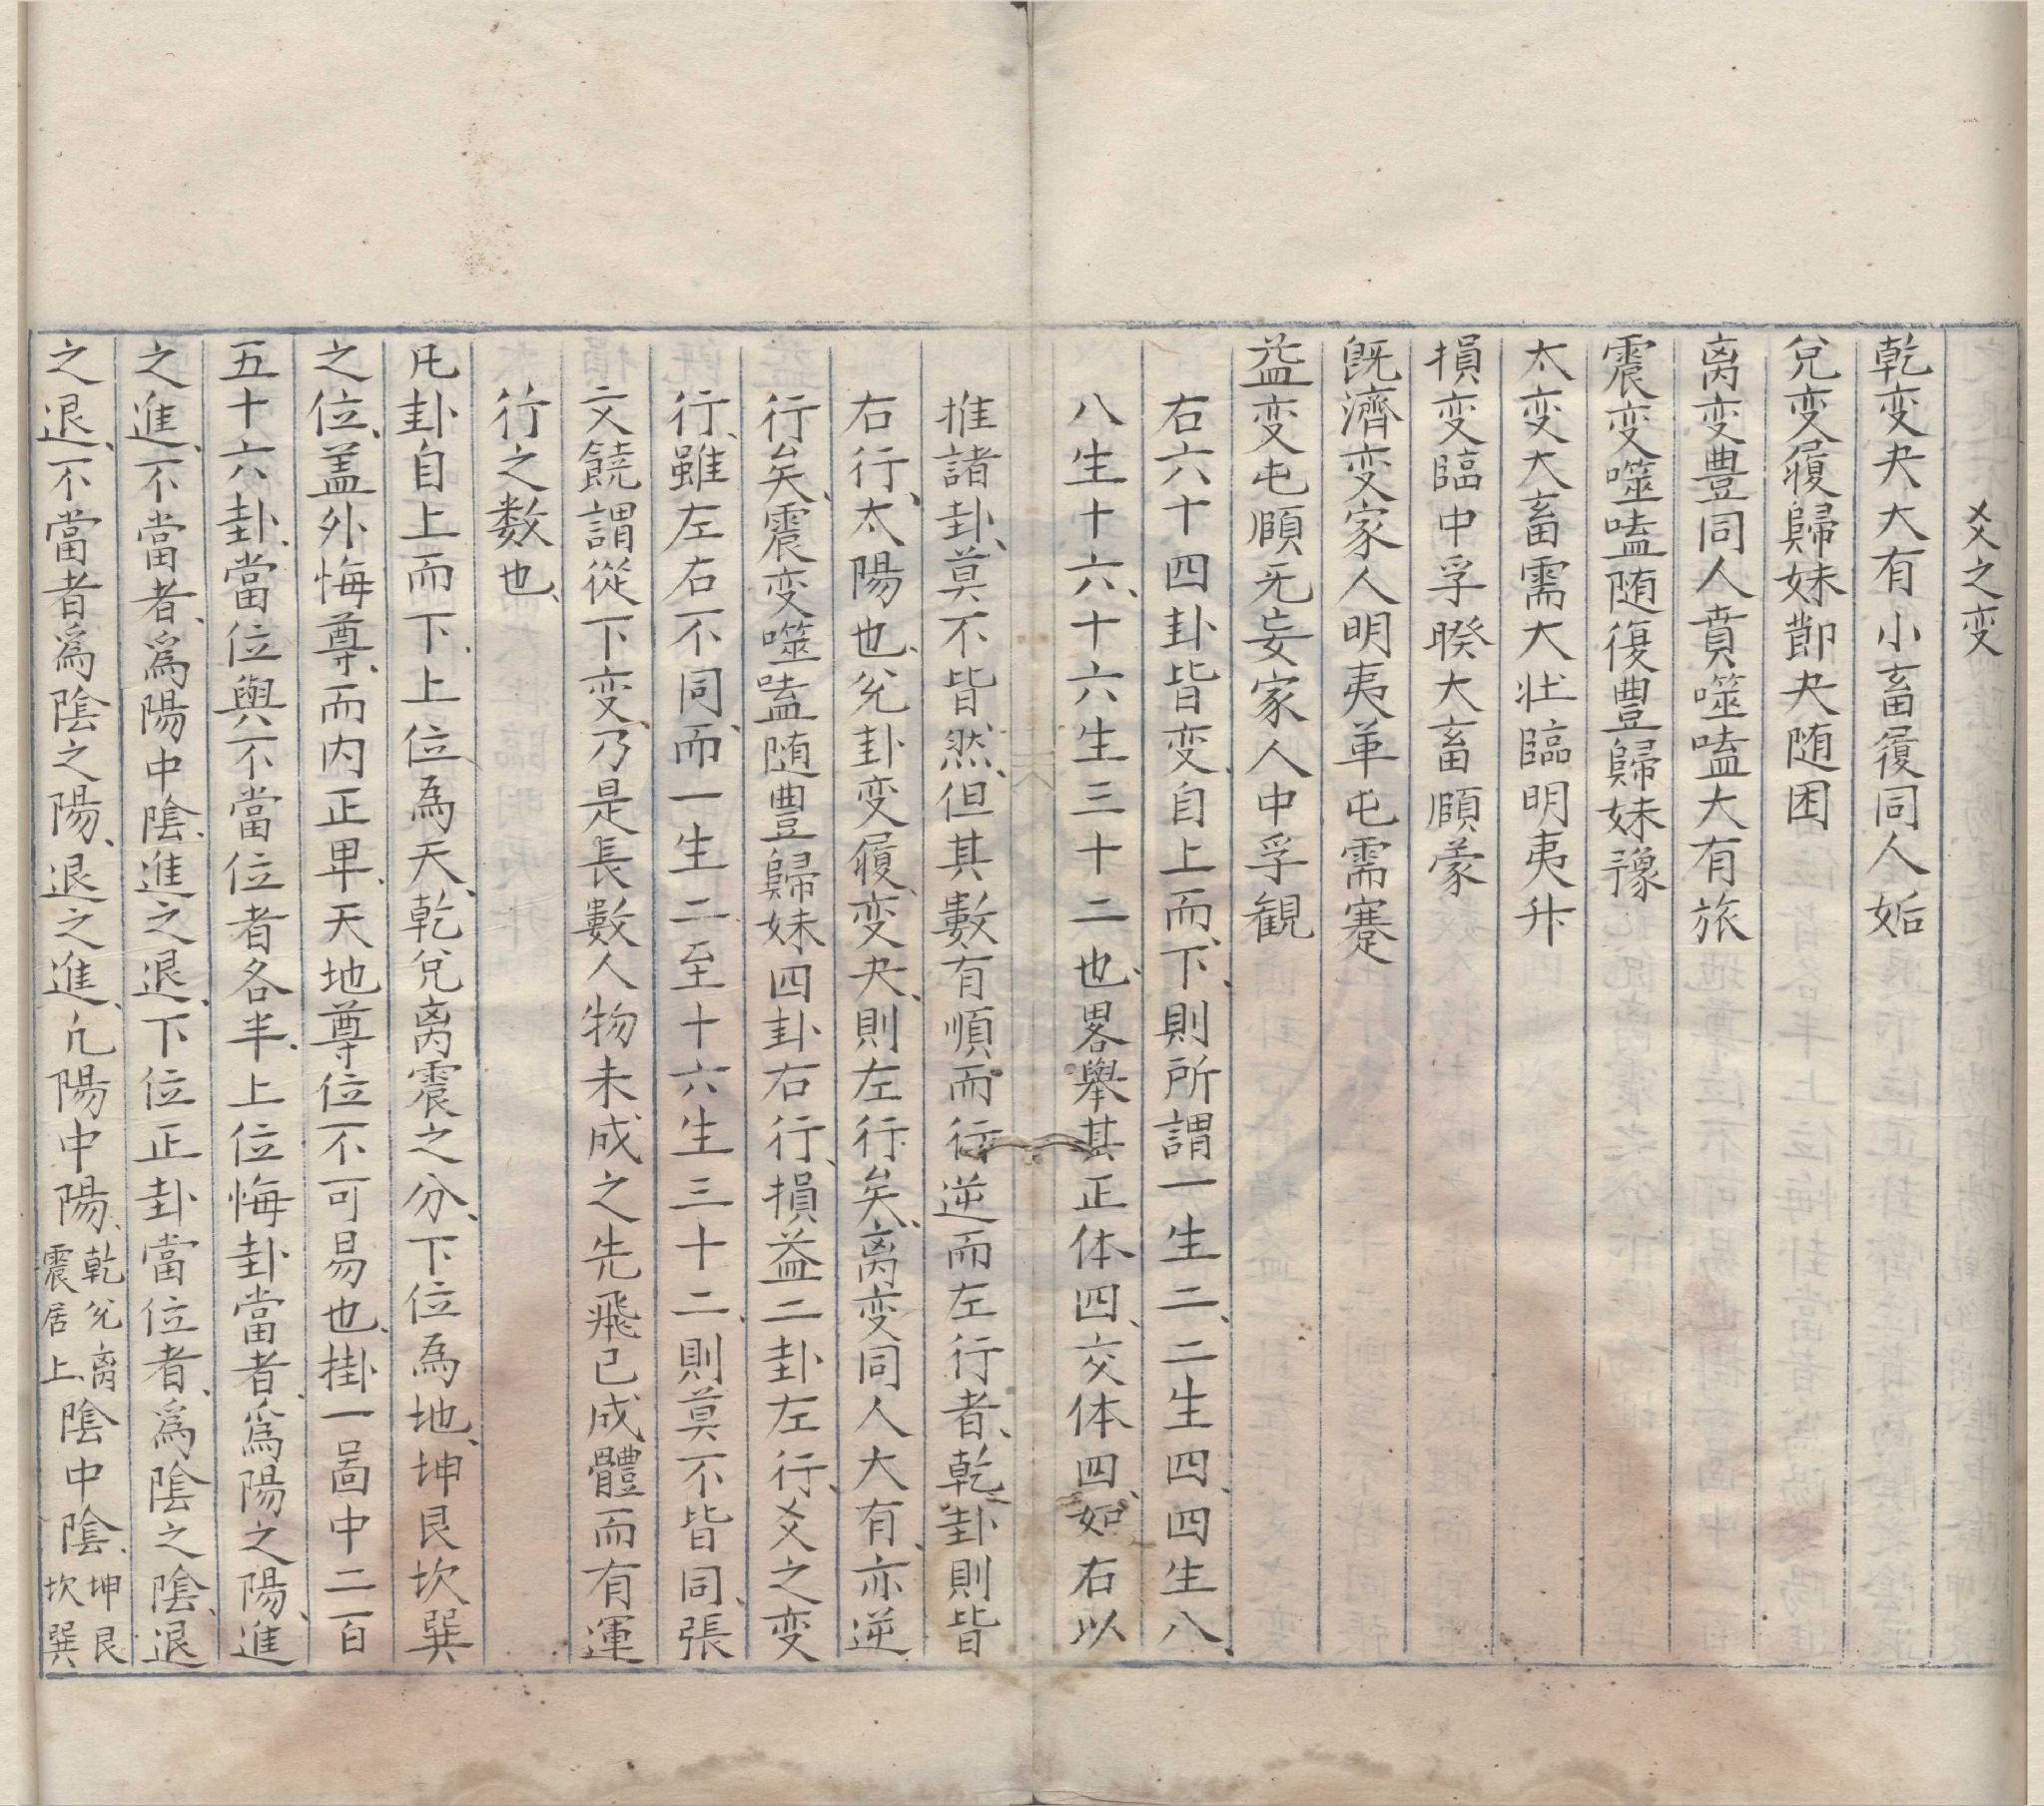 爻之变
乾变夬大有小畜履同人姤
兌变履歸妹節夬随困
离变豊同人賁噬嗑大有旅
震变噬嗑随復豊歸妹豫
太变大畜需大壮臨明夷升
損变臨中孚睽大畜頤蒙
既濟变家人明夷革屯需蹇
益变屯頤无妄家人中孚観
右六十四卦皆变、自上而下、則所謂一生二、二生四、四生八、
八生十六、十六生三十二也、畧舉其正体四、交体四、如右以
推諸卦、莫不皆然、但其數有順而行逆而左行者、乾卦則皆
右行、太陽也、兊卦变履、变夬、則左行矣、离变同人大有、亦逆
行矣、震变噬嗑随豊歸妹四卦右行、損益二卦左行、爻之变
行、雖左右不同、而一生二至十六生三十二、則莫不皆同、張
文饒謂從下变、乃是長數人物未成之先飛已成體而有運
行之数也、
凡卦自上而下、上位為天、乾兌离震之分、下位為地、坤艮坎巽
之位、盖外悔尊、而内正卑、天地尊位不可易也、掛一啚中二百
五十六卦、當位與不當位者各半、上位悔卦當者、爲陽之陽、進
之進、不當者、爲陽中陰、進之退、下位正卦當位者、爲陰之陰、退
之退、不當者爲陰之陽、退之進、凢陽中陽、乾兊离震居上、陰中陰、坤艮坎巽